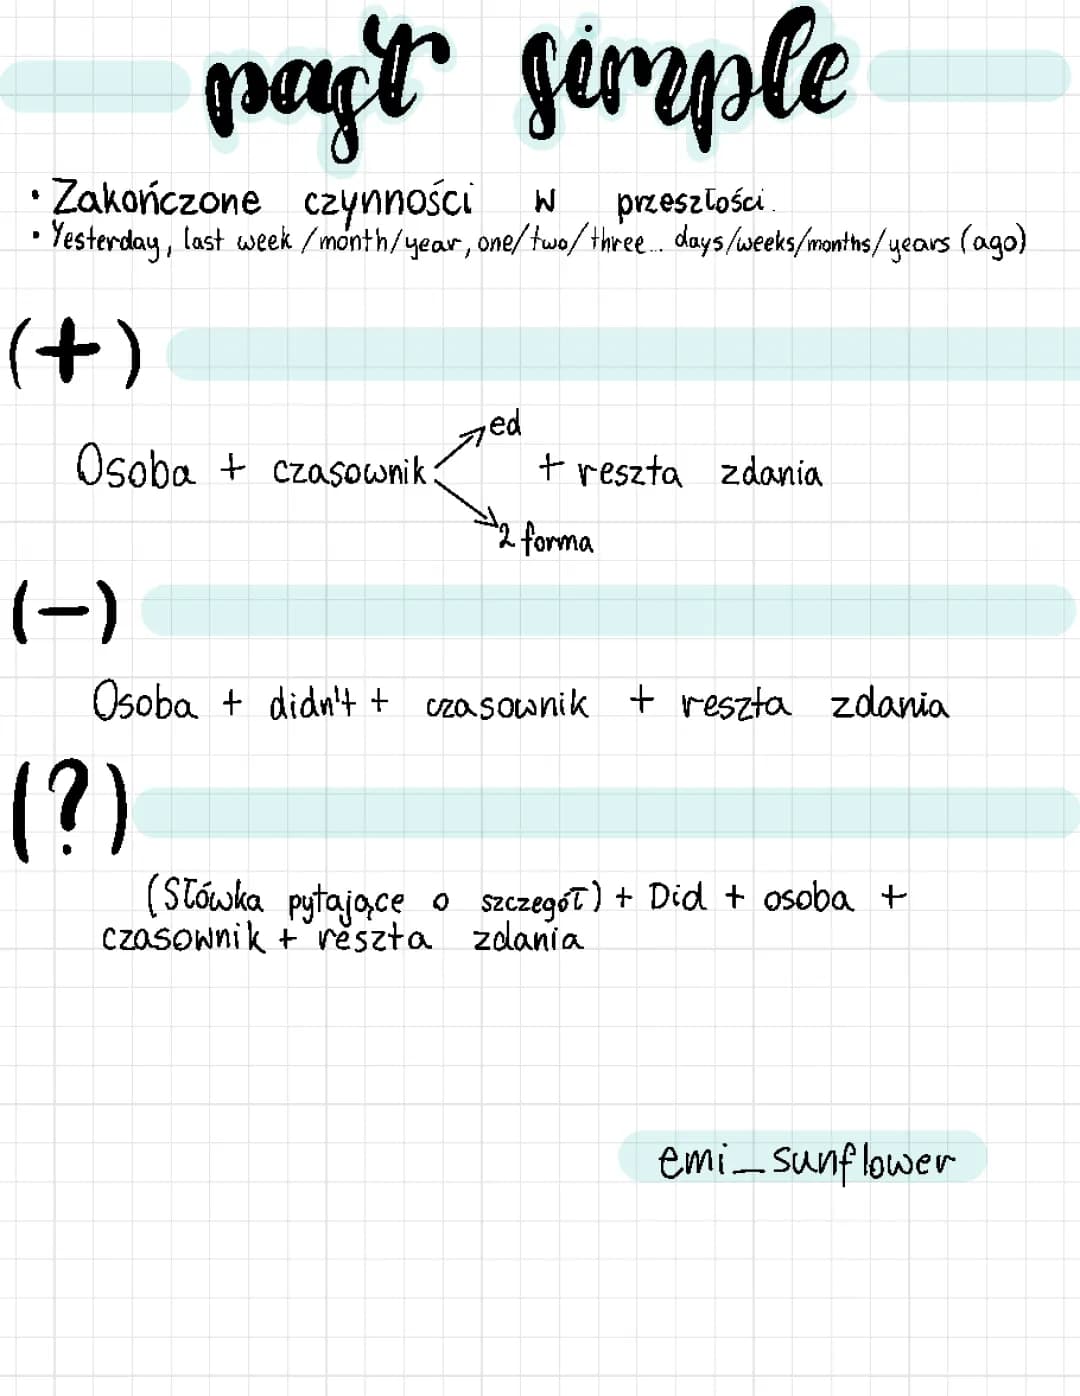 past simple
• Zakończone czynności w przeszłości.
• Yesterday, last week/month/year, one/two/three... days/weeks/months/years (ago)
(+)
ed
Osoba + czasownik + reszta zdania
2 forma
(-)
Osoba + didn't + czasownik + reszta zdania
(?)
(Słówka pytające o szczegół) + Did + osoba +
czasownik + reszta zdania
emi_sunflower